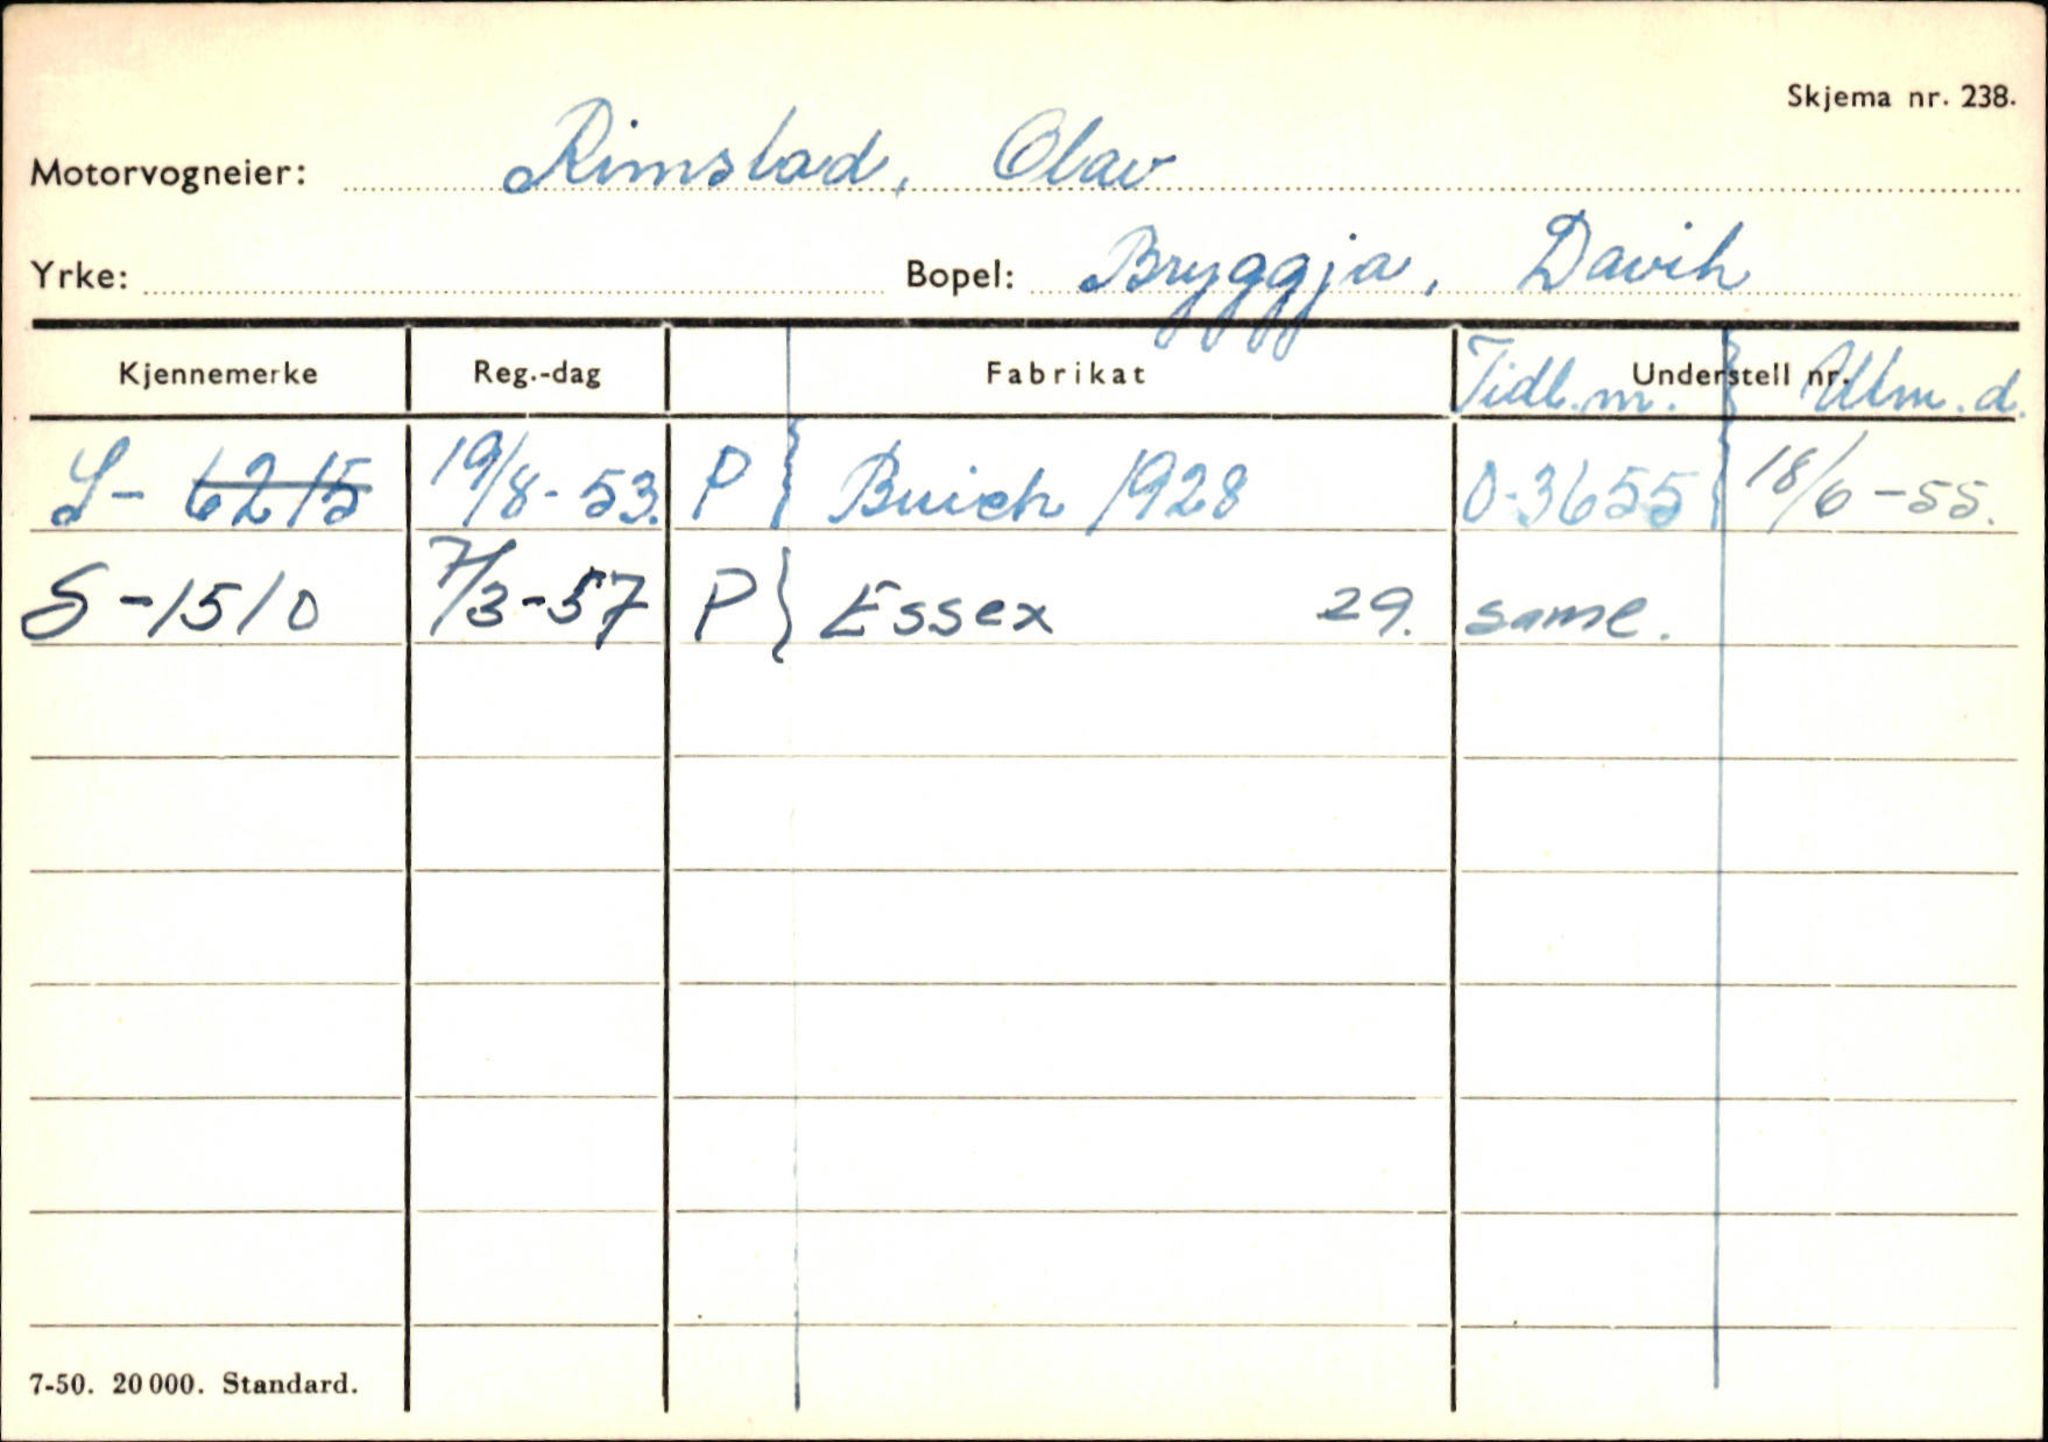 Skjema nr. 238.
Motorvogneier: Rimstad, Olav
Yrke: Bopel: Bryggja, Davik
Kjennemerke Reg.-dag Fabrikat Understell nr. Tidl. m. Utm. d.
S- 6215 19/8-53. P Buick 1928 O-3655 18/6-55.
S-1510 7/3-57 P Essex 29. same.
7-50. 20 000. Standard.